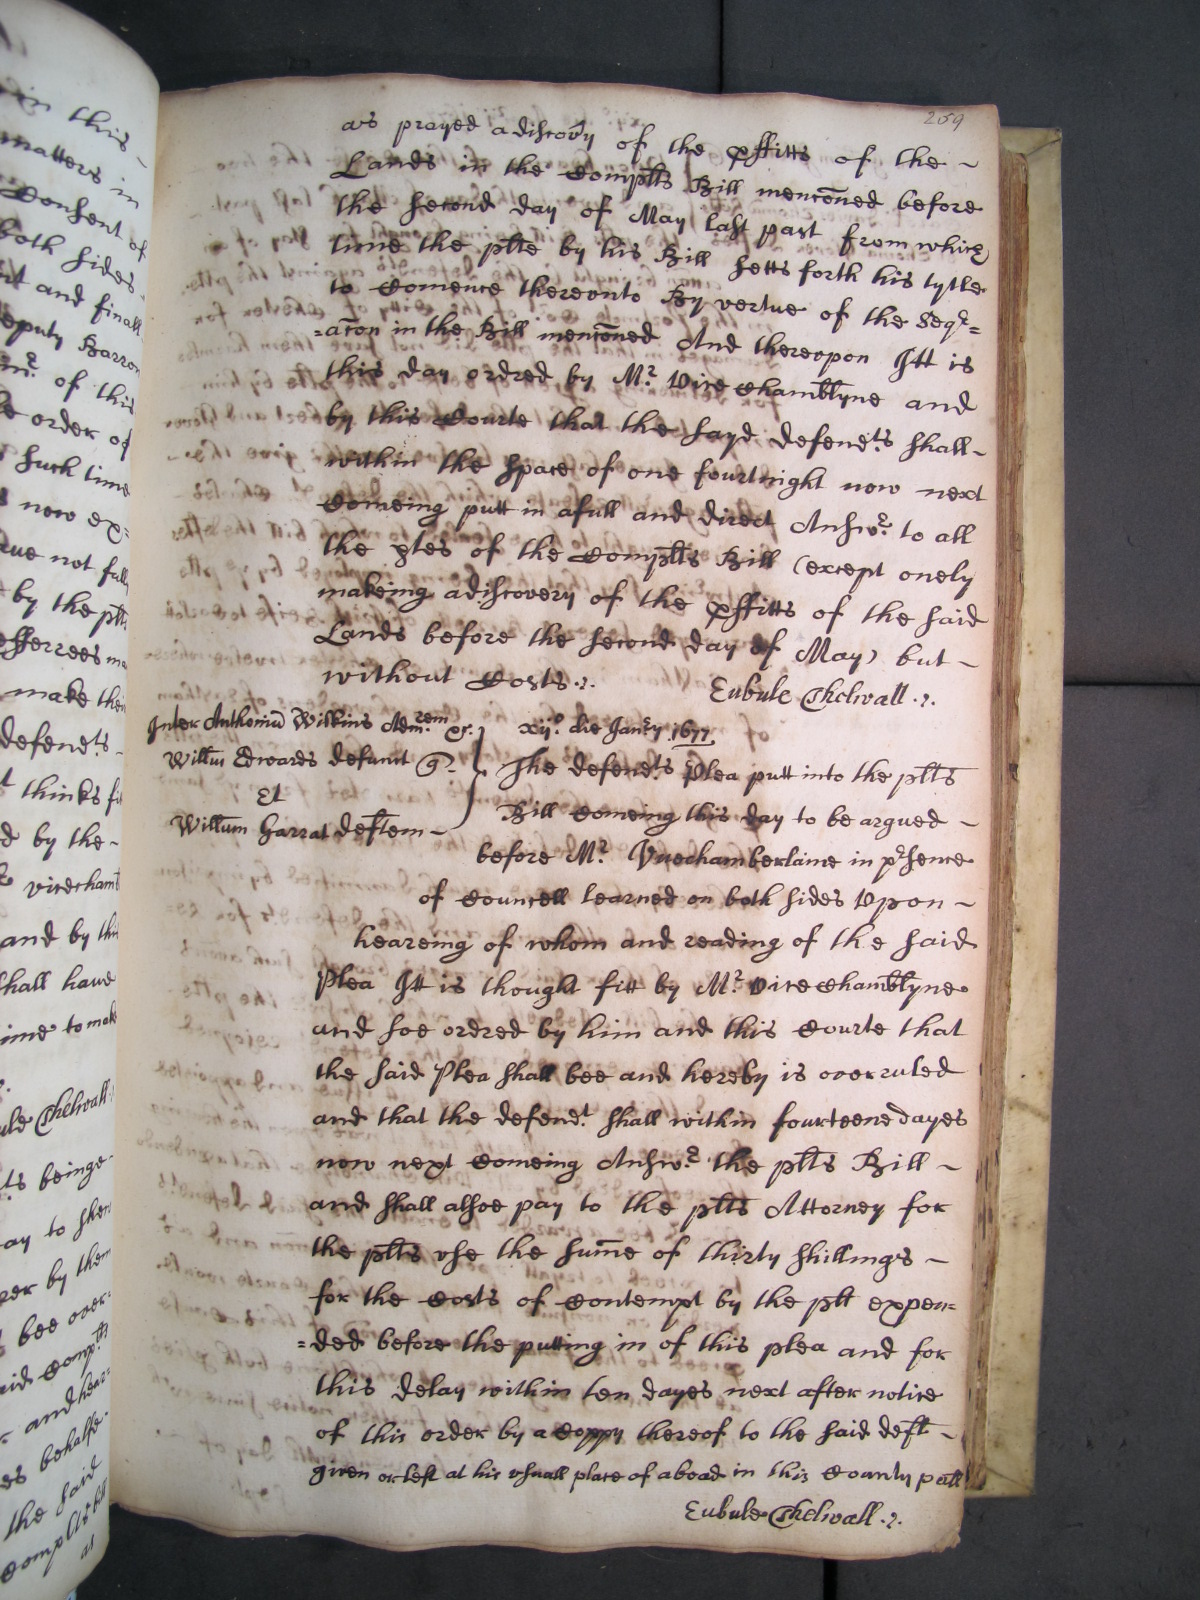 in this
matters in
Consent of
both sides
nt and finall
eputy Barron
of this
order of
such time
now ex=
rue not full
by the plts
fferrees
make their
defendts
t thinks fit
d by the -
vicechamb
and by this
shall have
ime to make
ule Chelwall
ts beinge
ay to shew
per by them
bee over:
aid Compts
and hear=
es behalfe
the said
complts bill
as
259
as prayed a discovy of the pffitts of the -
Lands in the Complts Bill menconed before
the second day of May last past from which
time the plte by his Bill setts forth his tytle
to Comence thereonto By vertue of the Seqr=
=acon in the Bill menconed And thereopon Itt is
this day ordred by Mr. Vice Chamblyne and
by this Courte that the sayd defendts shall-
within the space of one fourtnight now next
Comeing putt in a full and direct Answr. to all
the ptes of the Complts Bill (except onely
makeing a discovery of the pffitts of the said
Lands before the second day of May) but -
without Costs.
Eubule Thelwall
Inter Anthoniu Wilkins Admrem &c.
Willm Edwards defunct Q.
Et
Willum Garrat deftem -
xijo. die Janry. 1677.
The defendts. Plea putt into the plts
Bill Comeing this day to be argued -
before Mr. Vicechamberlaine in prsence
of Councell learned on both sides Upon -
heareing of whom and reading of the said
Plea Itt is thought fitt by Mr. Vice Chamblyne
and soe ordred by him and this Courte that
the said Plea shall bee and hereby is overruled
and that the defendt. shall within fourteene dayes
now next Comeing Answr. the plts Bill -
and shall alsoe pay to the plts Attorney for
the plts vse the sume of thirty shillings -
for the Costs of Contempt by the plt expen=
=ded before the putting in of this plea and for
this delay within ten dayes next after notice
of this order by a Coppy thereof to the said deft -
given or left at his vsuall place of aboad in this County pall
Eubule Thelwall